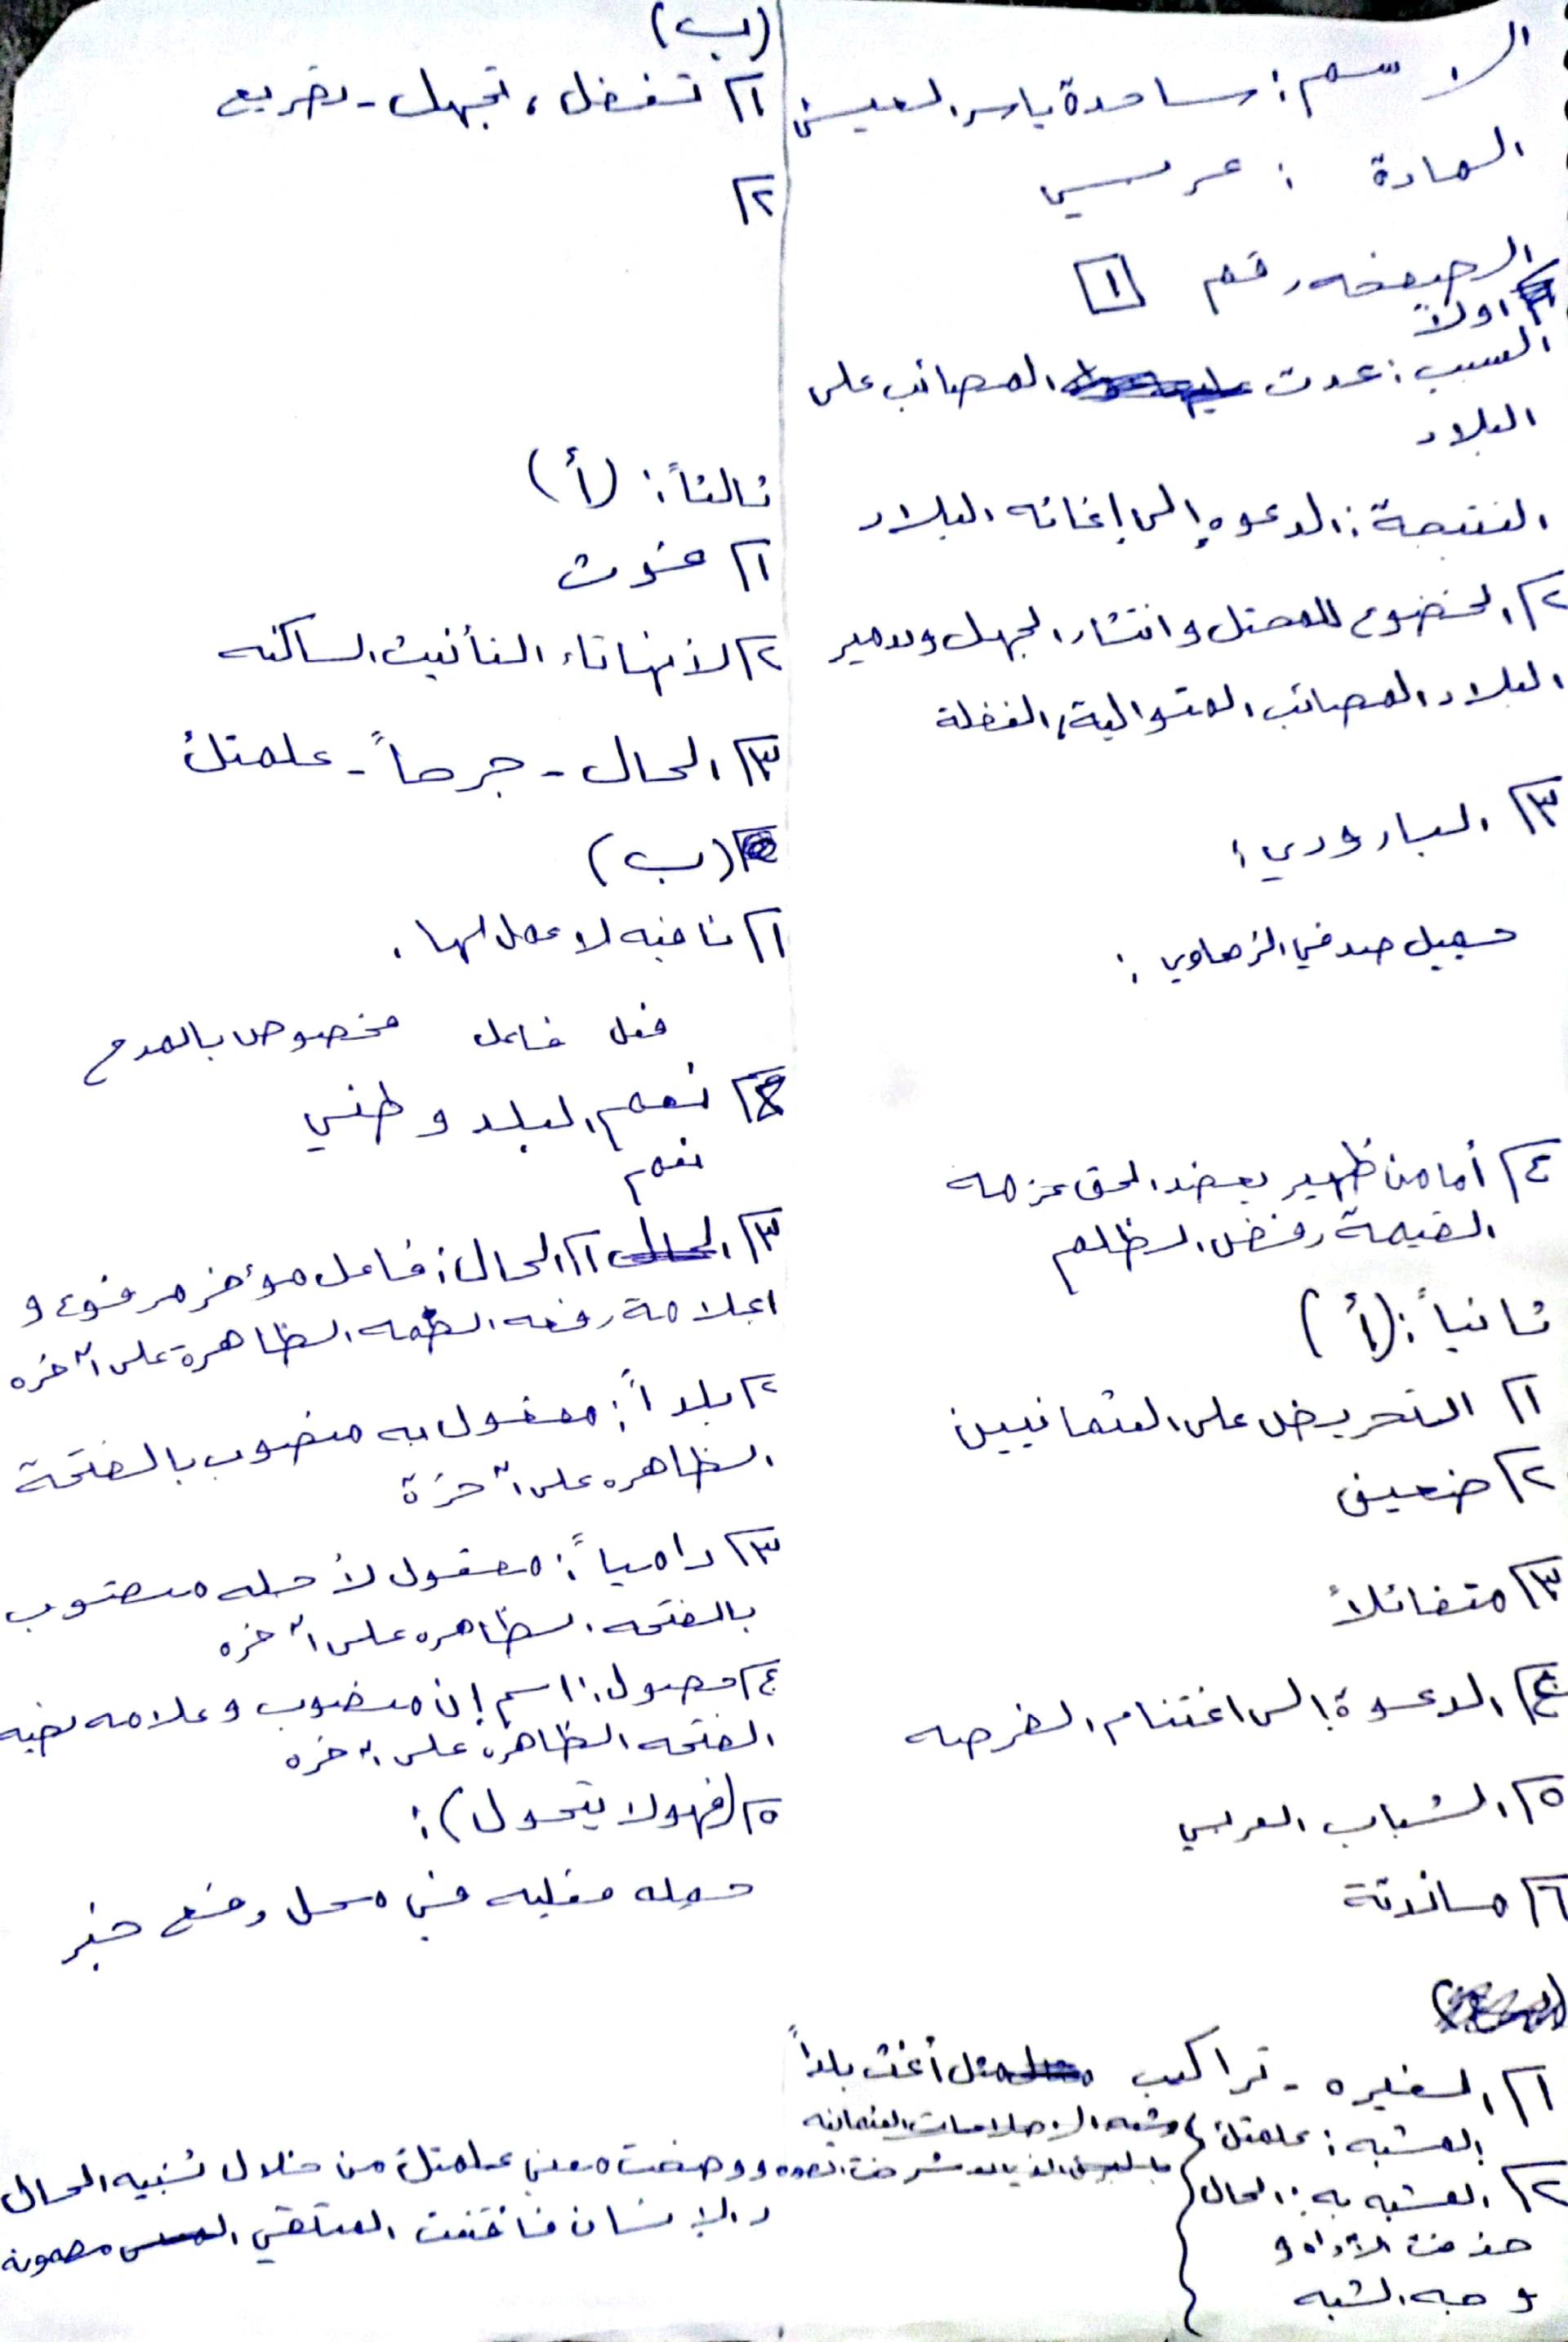 الاسم: ساجدة ياسر
المادة : عربي
الصيغه رقم ١
اولاً
السبب: عدت المصائب على
البلاد
النتيجة: الدعوه إلى إغاثه البلاد
٢ الخضوع للمحتل وانتشار الجهل وتدمير
البلاد المصائب المتوالية، الغفلة
٣ البارودي:
جميل صدقي الزهاوي:
٤ أما من ظهير يعضد الحق عزمه
القيمة رفض الظلم
ثانياً: (أ)
١ التحريض على العثمانيين
٢ ضعيف
٣ متفائلاً
٤ الدعوة إلى اغتنام الفرصه
٥ الشباب العربي
٦ مساندته
١ تراكيب مثل أغث بلداً
المشبه: علمتك
٢ المشبه به: الحال
حذفت الأداه و
وجه الشبه
ووضحت معنى علمتك من خلال تشبيه الحال
بالإنسان فأقنعت المتلقي
(ب)
١ تغفل، تجهل - تقريع
٢
ثالثاً: (أ)
١ عنوت
٢ لأنها تاء التأنيث الساكنه
٣ الحال - جرحاً - علمتك
(ب)
١ نافيه لا عمل لها.
فعل فاعل مخصوص بالمدح
٢ نعم البلد وطني
نعم
٣ ١ الحال: فاعل مؤخر مرفوع و
علامة رفعه الضمه الظاهرة على آخره
٢ بلداً: مفعول به منصوب بالفتحة
الظاهره على آخرة
٣ رامياً: مفعول لأجله منصوب
بالفتحه الظاهره على آخره
٤ اسم إن منصوب وعلامه نصبه
الفتحه الظاهره على آخره
٥ (فهو لا يتحول):
جمله فعليه في محل رفع خبر